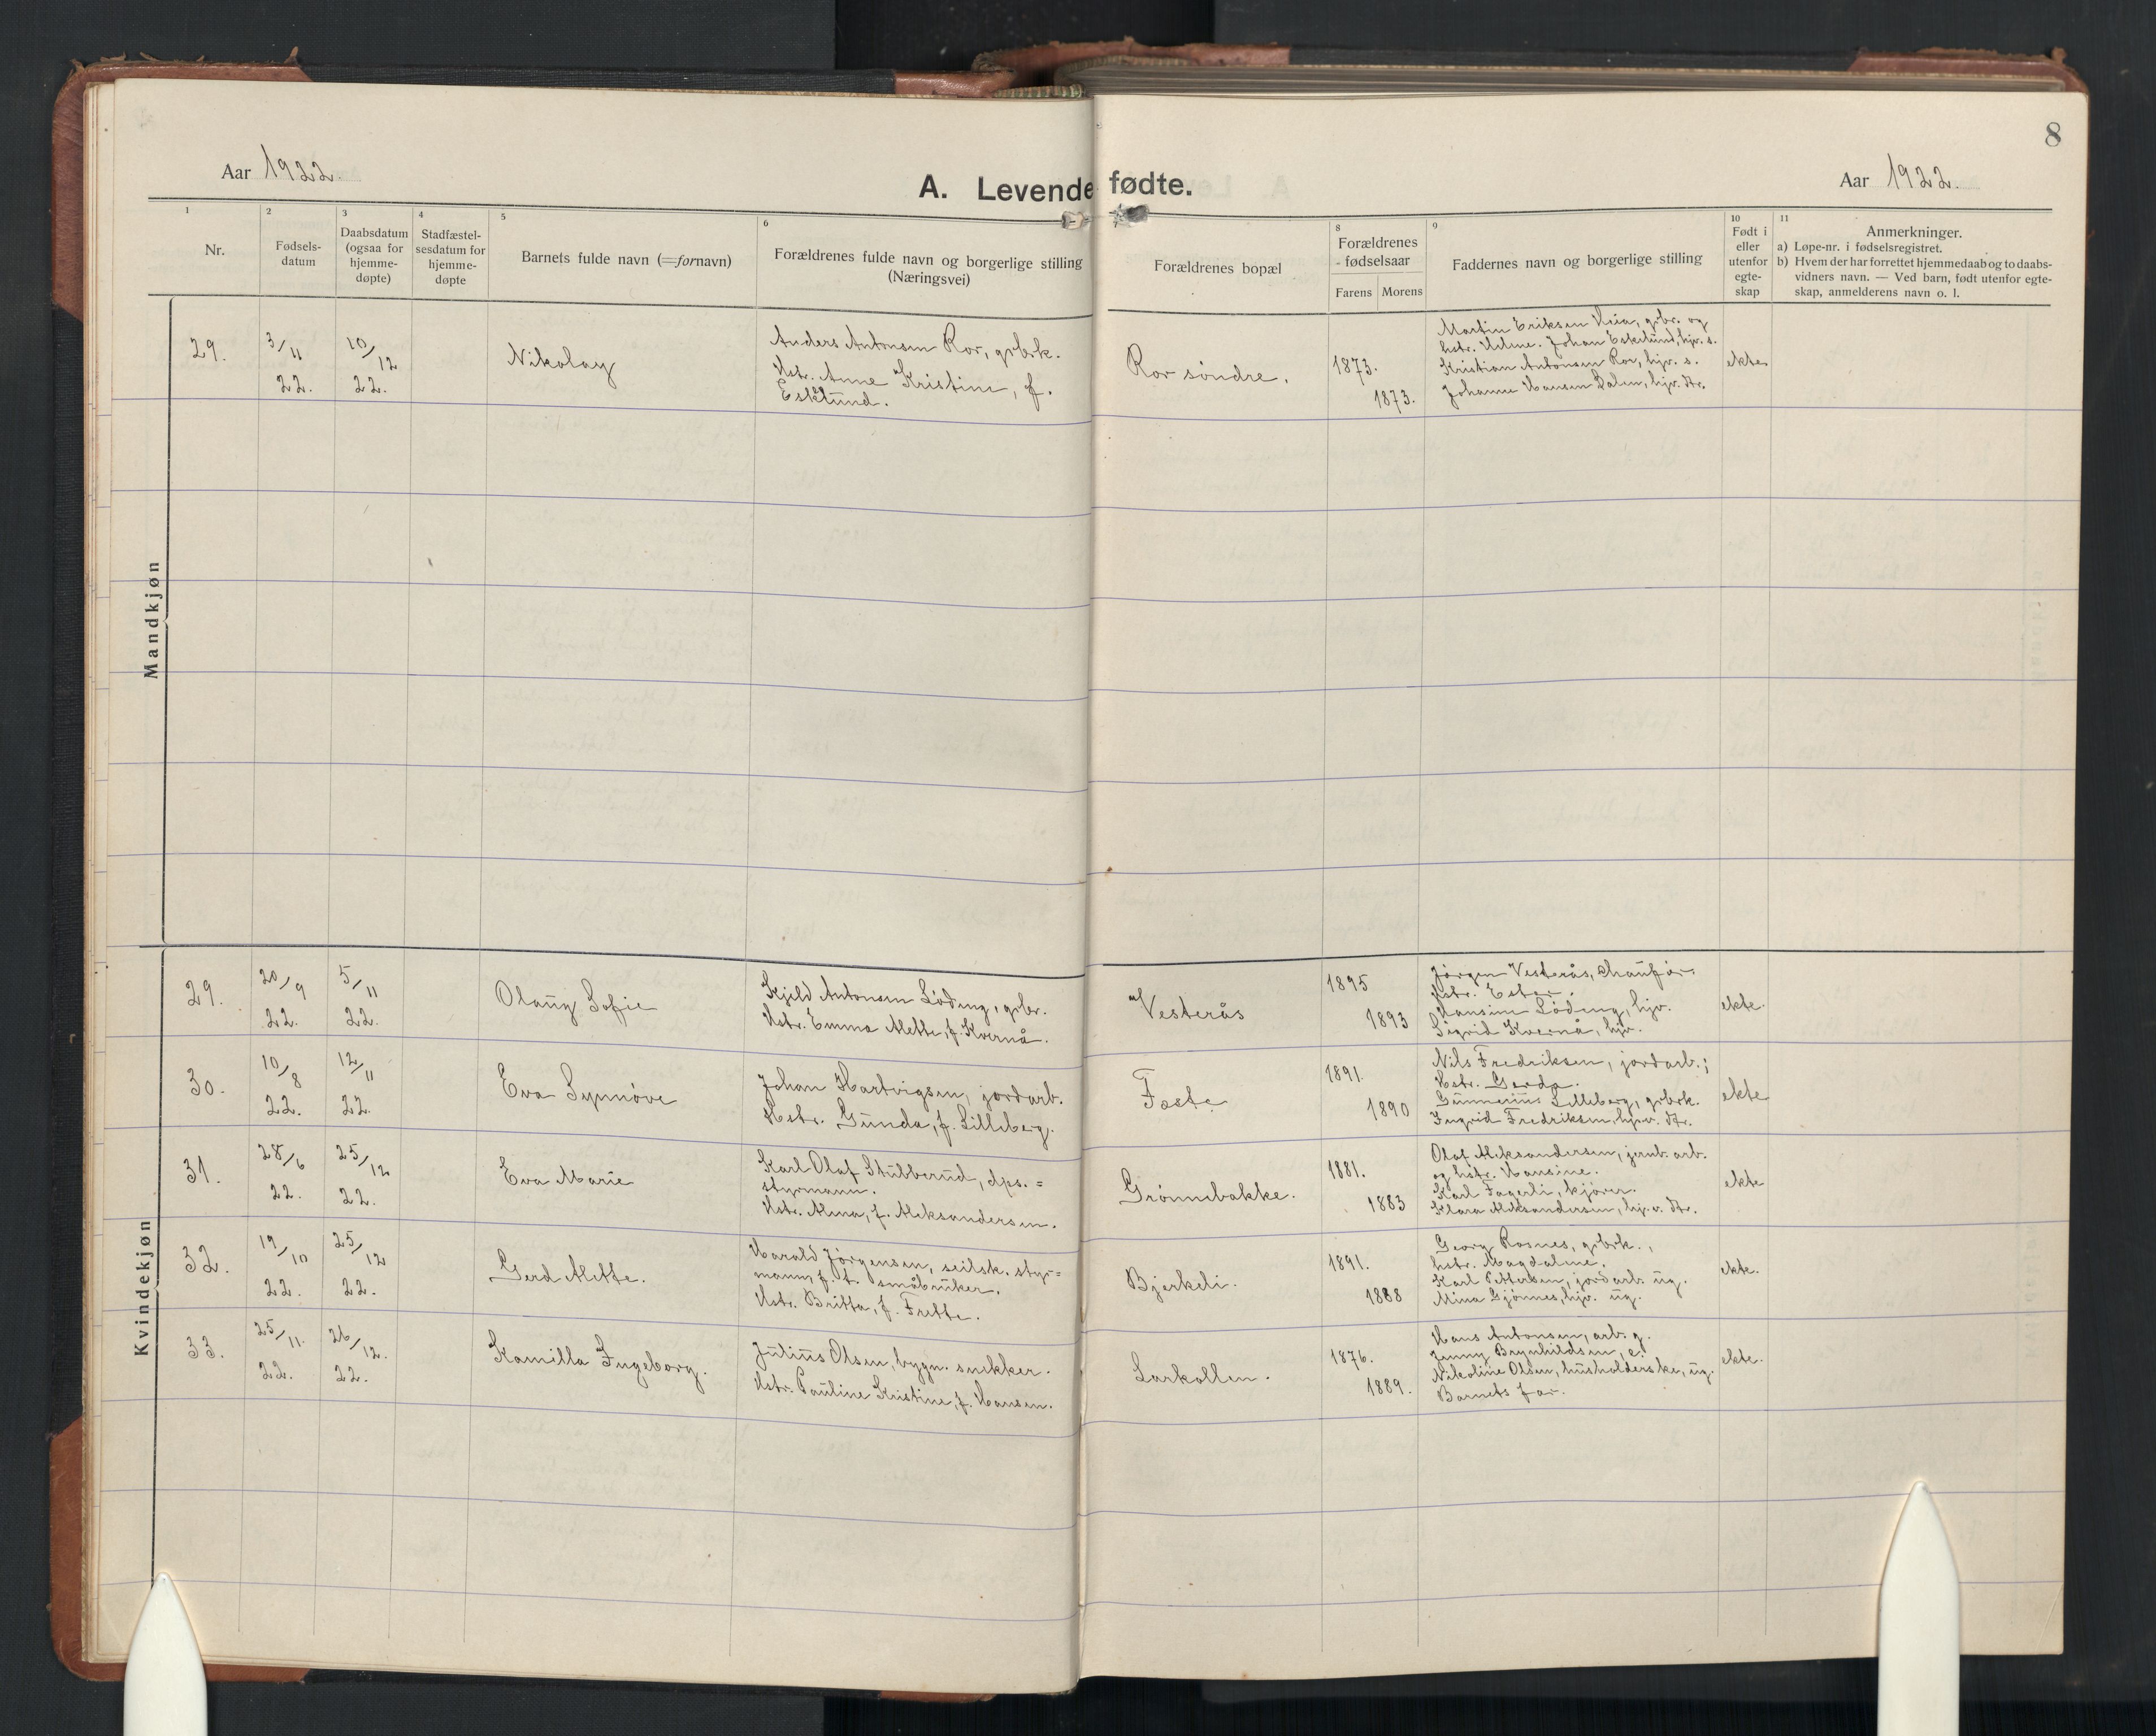 8
Aar 1922.
A. Levende fødte.
Aar 1922.
1 2 3 4 5 6 7 8 9 10 11
Nr.
Fødsels-
datum
Daabsdatum
(ogsaa for
hjemme-
døpte)
Stadfæstel-
sesdatum for
hjemme-
døpte
Barnets fulde navn (=fornavn)
Forældrenes fulde navn og borgerlige stilling
(Næringsvei)
Forældrenes bopæl
Forældrenes
fødselsaar
Farens Morens
Faddernes navn og borgerlige stilling
Født i
eller
utenfor
egte-
skap
Anmerkninger.
a) Løpe-nr. i fødselsregistret.
b) Hvem der har forrettet hjemmedaab og to daabs-
vidners navn. — Ved barn, født utenfor egte-
skap, anmelderens navn o. l.
Mandkjøn
29.
3/11
22.
10/12
22.
Nikolay
Anders Antonsen Ror, grbrk.
Hstr. Anne Kristine, f.
Esklund.
Ror søndre.
1873.
1873.
Martin Eriksen grbr. og
hstr. Johan Eskelund, hjv. s.
Kristian Antonsen Ror, hjv. s.
Johanne Hansen Dalen, hjv. dtr.
ekte
Kvindekjøn
29.
20/9
22.
5/11
22.
Olaug Sofie
Kjeld Antonsen Løding, grbr.
Hstr. Emma Alette, f. Kvernå.
Vesterås
1895
1893
Jørgen Vesterås, chaufør.
Hstr. Ester.
Hansine Løding, hjv.
Sigrid Kvernå, hjv.
ekte.
30.
10/8
22.
12/11
22.
Eva Synnøve
Johan Hartvigsen, jordarb.
Hstr. Gunda, f. Lilleberg.
Foste
1891.
1890
Nils Fredriksen, jordarb.;
Hstr. Gerda.
Gunnerius Lilleberg, grbrk.
Ingrid Fredriksen, hjv. dtr.
ekte
31.
28/6
22.
25/12
22.
Eva Marie
Karl Olaf Stubberud, dps.=
styrmann.
Hstr. Alma, f. Aleksandersen.
Grønnebakke.
1881.
1883
Olaf Aleksandersen, jernb. arb.
og hstr. Hansine.
Karl Fagerli, kjører.
Klara Aleksandersen, hjv. dtr.
ekte
32.
19/10
22.
25/12
22.
Gerd Alette.
Harald Jørgensen, seilsk. styr=
mann, f. t. småbruker.
Hstr. Britta, f. Frette.
Bjerkeli.
1891.
1888
Georg Rosnes, grbrk.,
hstr. Magdalene.
Karl Pettersen, jordarb. ug.
Mina Gjønnes, hjv. ug.
ekte.
33.
25/11.
22.
26/12.
22.
Kamilla Ingeborg.
Julius Olsen, bygn. snikker.
Hstr. Pauline Kristine, f. Hansen.
Larkollen.
1876.
1889.
Hans Antonsen, arb. g.
Jenny Brynhildsen, e.
Nikoline Olsen, husholderske, ug.
Barnets far.
ekte.